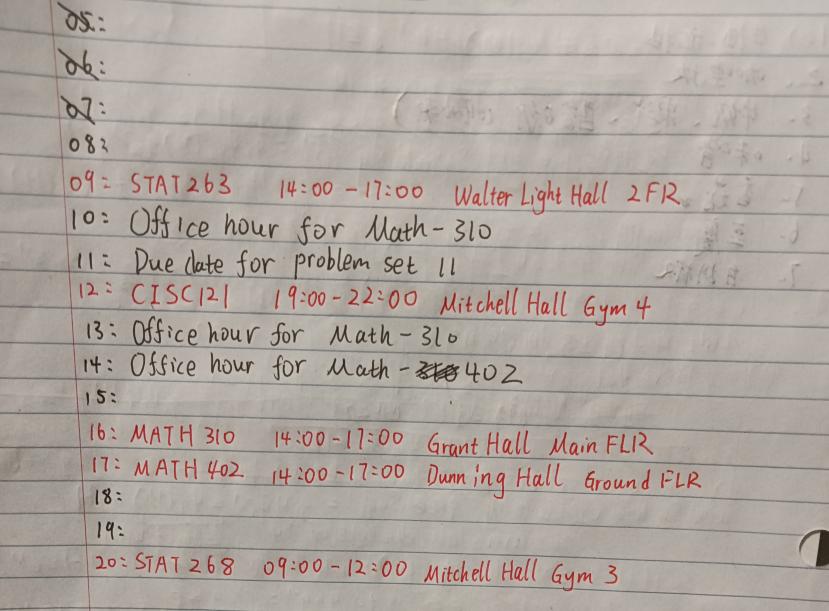 05:
06:
07:
08:
09: STAT263 14:00-17:00 Walter Light Hall 2FLR
10: Office hour for Math-310
11: Due date for problem set 11
12: CISC121 19:00-22:00 Mitchell Hall Gym 4
13: Office hour for Math-310
14: Office hour for Math-402
15:
16: MATH 310 14:00-17:00 Grant Hall Main FLR
17: MATH 402 14:00-17:00 Dunning Hall Ground FLR
18:
19:
20: STAT 268 09:00-12:00 Mitchell Hall Gym 3